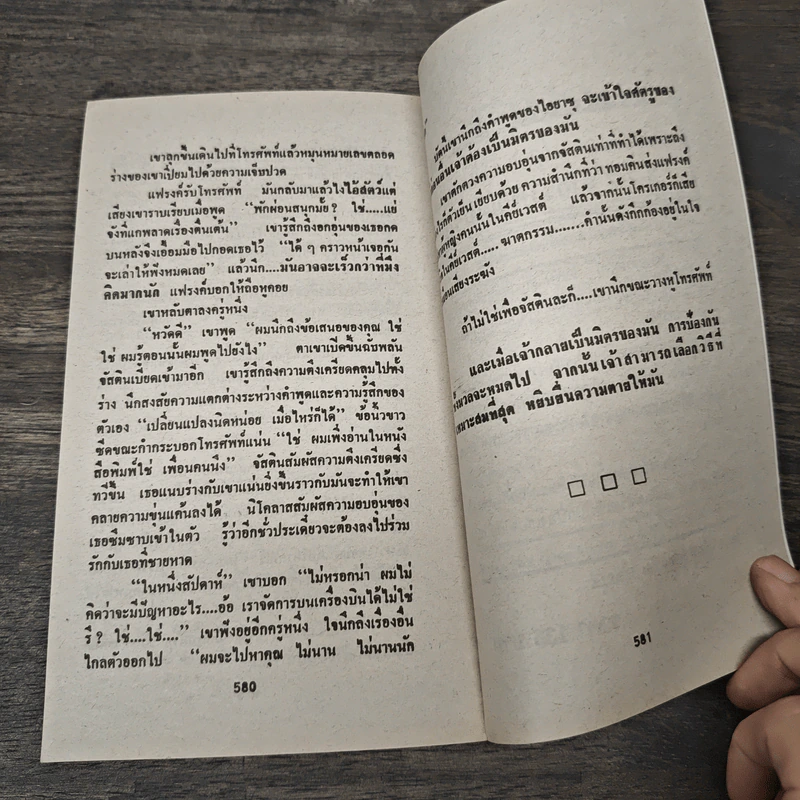 เขาลุกขึ้นเดินไปที่โทรศัพท์แล้วหมุนหมายเลขตลอด
ร่างของเขาเปี่ยมไปด้วยความเจ็บปวด
แฟรงค์รับโทรศัพท์ มันกลับมาแล้วไงไอ้สัตว์แต่
เสียงเขาราบเรียบเมื่อพูด “พักผ่อนสนุกมั้ย? ใช่.....แย่
จังที่แกพลาดเรื่องตื่นเต้น” เขารู้สึกถึงอกอุ่นของเธอกด
บนหลังจึงเอื้อมมือไปกอดเธอไว้ “ได้ ๆ คราวหน้าเจอกัน
จะเล่าให้ฟังหมดเลย” แล้วนึก....มันอาจจะเร็วกว่าที่มึง
คิดมากนัก แฟรงค์บอกให้ถือหูคอย
เขาหลับตาลงครู่หนึ่ง
“หวัดดี” เขาพูด “ผมนึกถึงข้อเสนอของคุณ ใช่
ใช่ ผมรู้ตอนนั้นผมพูดไปยังไง” ตาเขาเปิดขึ้นฉับพลัน
จัสตินเบียดเข้ามาอีก เขารู้สึกถึงความตึงเครียดคลุมไปทั้ง
ร่าง นึกสงสัยความแตกต่างระหว่างคำพูดและความรู้สึกของ
ตัวเอง “เปลี่ยนแปลงนิดหน่อย เมื่อไหร่ก็ได้” ข้อนิ้วขาว
ซีดขณะกำกระบอกโทรศัพท์แน่น “ใช่ ผมเพิ่งอ่านในหนัง
สือพิมพ์ใช่ เพื่อนคนนึง” จัสตินสัมผัสความตึงเครียดซึ่ง
ทวีขึ้น เธอแนบร่างกับเขาแน่นยิ่งขึ้นราวกับมันจะทำให้เขา
คลายความขุ่นแค้นลงได้ นิโคลาสสัมผัสความอบอุ่นของ
เธอซึมซาบเข้าในตัว รู้ว่าอีกชั่วประเดี๋ยวจะต้องลงไปร่วม
รักกับเธอที่ชายหาด
“ในหนึ่งสัปดาห์” เขาบอก “ไม่หรอกน่า ผมไม่
คิดว่าจะมีปัญหาอะไร....อ้อ เราจัดการบนเครื่องบินได้ไม่ใช่
รึ? ใช่....ใช่....” เขาฟังอยู่อีกครู่หนึ่ง ใจนึกถึงเรื่องอื่น
ไกลตัวออกไป “ผมจะไปหาคุณ ไม่นาน ไม่นานนัก
580
เขานึกถึงคำพูดของไอยาซุ จะเข้าใจศัตรูของ
เจ้าต้องเป็นมิตรของมัน
เขาตักตวงความอบอุ่นจากจัสตินเท่าที่ทำได้เพราะถึง
ตัวเย็นเยียบด้วย ความสำนึกที่ว่า ทอมคินส่งแฟรงค์
หญิงคนนั้นในคีย์เวสต์ แล้วจากนั้นโครเกอร์ก็เสีย
ในคีย์เวสต์..... ฆาตกรรม.......คำนั้นดังกึกก้องอยู่ในใจ
เสียงระฆัง
ถ้าไม่ใช่เพื่อจัสตินละก็....เขานึกขณะวางหูโทรศัพท์
และเมื่อเจ้ากลายเป็นมิตรของมัน การป้องกัน
มวลจะหมดไป จากนั้นเจ้าสามารถเลือกวิธีที่
เหมาะสมที่สุด หยิบยื่นความตายให้มัน
581